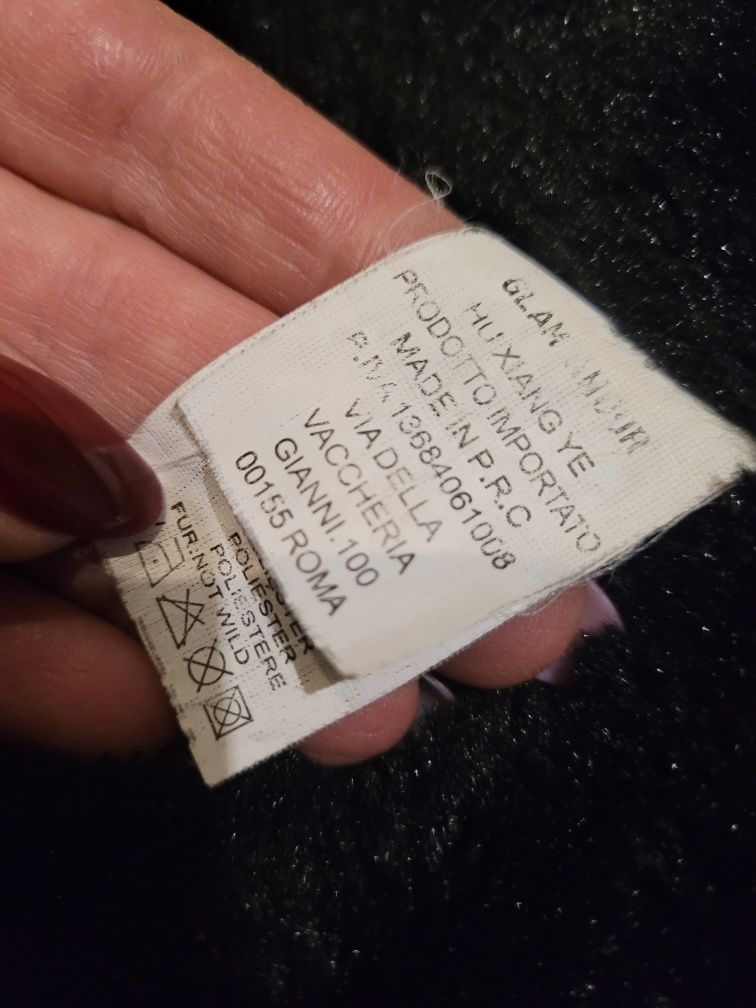 GLAM
HU XIANG YE
PRODOTTO IMPORTATO
MADE IN P.R.C
P.IVA 13684061008
VIA DELLA
VACCHERIA
GIANNI. 100
00155 ROMA
POLIESTER
POLIESTER
POLIESTERE
FUR:NOT WILD